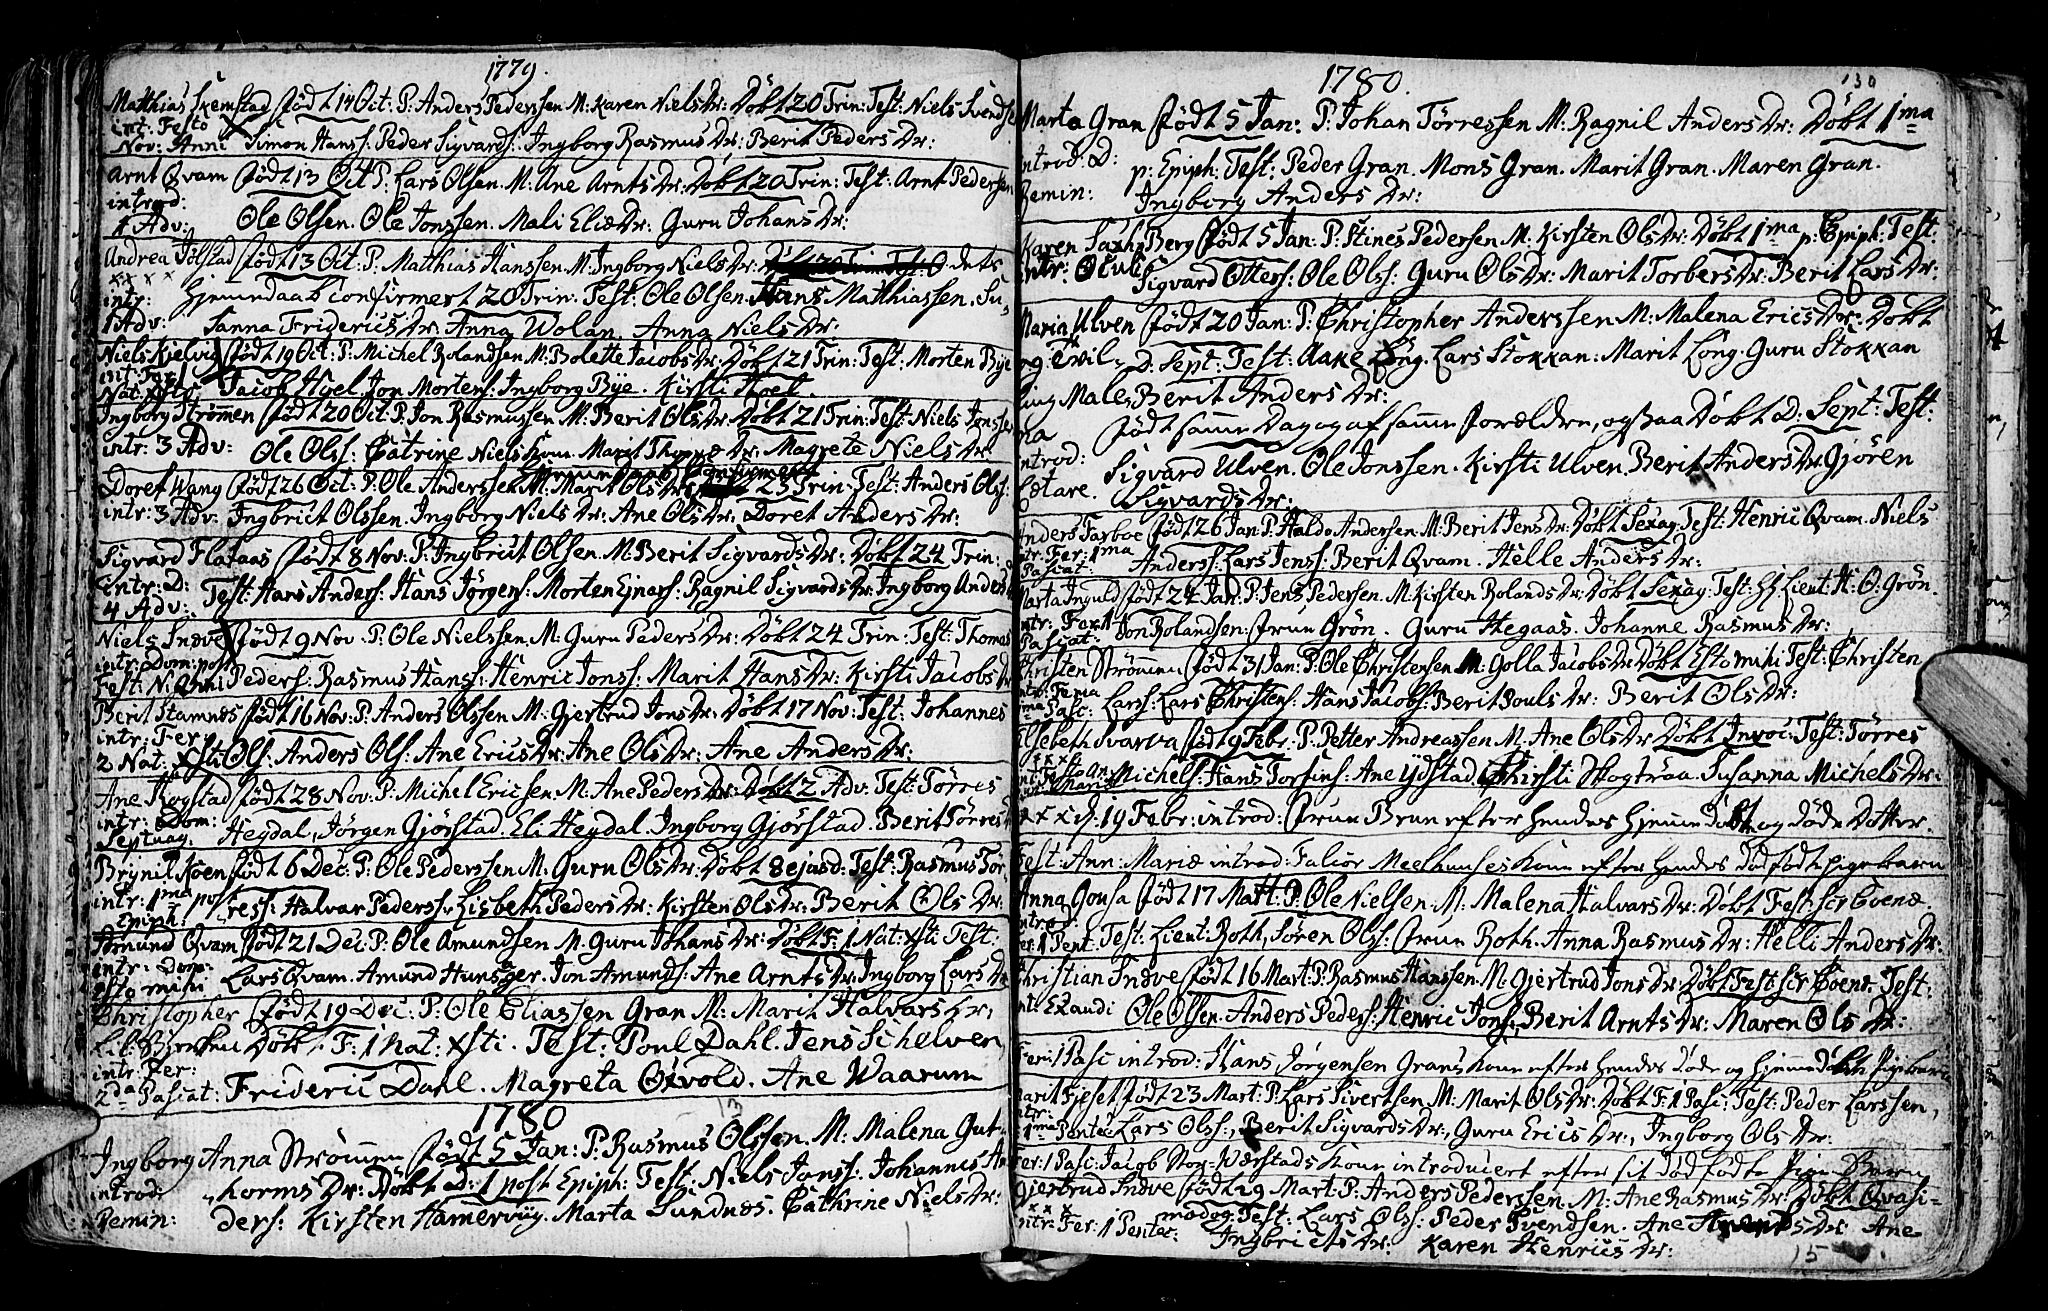 1779.
Matthias Skemstad født 14 Oct: P: Anders Pederssen M: Karen Niels Dr: Døbt 20 Trin: Test: Niels Svends
int: Festo
Nov: Anni Simon Hanss: Peder Sigvards: Ingborg Rasmus Dr: Berit Peders Dr:
Arnt Qvam født 13 Oct P: Lars Olsen. M: Ane Arnts Dr: Døbt 20 Trin: Test: Arnt Pedersen
introd:
1 Adv: Ole Olsen. Ole Jonssen. Mali Eliæ Dr: Guru Johans Dr:
Andrea Jølstad født 13 Oct: P: Matthias Hanssen. M: Ingborg Niels Dr: dets
x x x x
intr: Hjemmdaab confirmert 20 Trin: Test: Ole Olsen. Hans Matthiassen. Su-
1 Adv: sanna Friderics Dr: Anna Wolan. Anna Niels Dr:
Niels Kielvig født 19 Oct: P: Michel Rolandsen M: Bolette Jacobs Dr: Døbt 21 Trin: Test: Morten Bye
int: Fer 1
Nat: Xsti Jacob Hoel. Jon Mortens: Ingborg Bye. Kirsti Hoel.
Ingborg Strømen født 20 Oct: P: Jon Rasmussen M: Berit Ols Dr: Døbt 21 Trin: Test: Niels Jonssen
intr: 3 Adv: Ole Olss: Catrine Niels Koun Marit Dr: Magrete Niels Dr
Hjemmdaab confirmert
Doret Wang født 26 Oct: P: Ole Anderssen M: Marit Ols Dr: 23 Trin: Test: Anders Ols:
intr: 3 Adv: Ingbrict Olssen. Ingborg Niels Dr: Ane Ols Dr: Doret Anders Dr:
Sigvard Flataas født 8 Nov: P: Ingbrict Olsen. M: Berit Sigvards Dr: Døbt 24 Trin:
intr: D:
4 Adv: Test: Hans Anders: Hans Jørgens: Morten Ejnars: Ragnil Sigvards Dr: Ingborg Anders
Niels Indve født 9 Nov. P: Ole Nielssen. M: Guru Peders Dr: Døbt 24 Trin: Test: Thomas
intr: Dom: post
Fest: N: Anni Peders: Rasmus Hanss: Henric Jonss: Marit Hans Dr: Kirsti Jacobs Dr
Berit Stamnes født 16 Nov: P: Anders Olssen M: Gjertrud Jons Dr: Døbt 17 Nov: Test: Johannes
intr: Fer:
2 Nat: Xsti Ols: Anders Ols: Ane Erics Dr: Ane Ols Dr: Ane Anders Dr:
Ane Rogstad født 28 Nov: P: Michel Ericsen. M: Ane Peders Dr: Døbt 2 Adv: Test: Tørres
intr: Dom:
Septuag. Heydal, Jørgen Gjørstad. Eli Heydal. Ingborg Gjørstad. Berit Tørres
Brynil Moen født 6 Dec: P: Ole Pederssen M: Guru Ols Dr: Døbt 8 ejusd: Test: Rasmus Tør-
intr: 1ma post
Epiph: ress: Halvar Peders: Lisbeth Peders Dr: Kirsten Ols Dr: Berit Ols Dr:
Amund Qvam født 21 Dec: P: Ole Amundsen M: Guru Johans Dr: Døbt F: 1 Nat: Xsti Test:
intr: Dom:
Esto mihi Lars Qvam. Amund Hunsager. Jon Amunds: Ane Arnts Dr: Ingborg Lars Dr
Christopher født 19 Dec: P: Ole Eliassen Gran M: Marit Halvars Dr,
Døbt F: 1 Nat: Xsti. Test: Poul Dahl. Jens Schelven
intr: Fer:
2da Pascat: Frideric Dahl. Magreta Oxvold. Ane Waarum
1780
Ingborg Anna Strømen født 5 Jan: P: Rasmus Olssen. M: Malena Gut-
introd: horms Dr: Døbt D: 1 post Epiph: Test: Niels Jonss: Johannes An
Remin: ders: Kirsten Hamervig. Marta Sundnæs. Cathrine Niels Dr:
1780.
130
Marta Gran født 5 Jan: P: Johan Tørressen M: Ragnil Anders Dr: Døbt 1ma
introd: D: p: Epiph: Test: Peder Gran. Mons Gran. Marit Gran. Maren Gran.
Remin: Ingborg Anders Dr:
Karen Saxhs Berg født 5 Jan: P: Stines Pedersen M: Kirsten Ols Dr: Døbt 1ma p: Epiph: Test:
intr: Oculi Sigvard Otters: Ole Olss: Guru Ols Dr: Marit Torbers Dr: Berit Lars Dr:
Marin Ulven født 20 Jan: P: Christopher Anderssen M: Malena Erics Dr: Døbt
og Tvil- D. Sept: Test: Aake Løng. Lars Stokkan: Marit Løng. Guru Stokkan
ling Male, Berit Anders Dr:
na født samme Dag og af samme Forældre, ogsaa Døbt D. Sept: Test:
introd: Sigvard Ulven. Ole Jonssen. Kirsti Ulven. Berit Anders Dr: Gjøren
Lætare. Sigvards Dr:
Anders Farboe født 26 Jan: P: Haldo Andersen. M: Berit Jens Dr: Døbt Sexag: Test: Henric Qvam. Niels
intr: Fer: 1ma
Pascat: Anders: Lars Jenss: Berit Qvam. Helle Anders Dr:
Marta Inguld født 24 Jan: P: Jens Pedersen. M: Kirsten Rolands Dr: Døbt Sexag: Test: Lieut: H: O. Grøn.
intr: Fer 1
Pascat: Jon Rolandsen. Frue Grøn. Guru Hegaas. Johanne Rasmus Dr:
Christen Strømen født 31 Jan: P: Ole Christensen M: Golla Jacobs Dr Døbt Esto mihi Test: Christen
Pasc: Lars: Lars Christens: Hans Jacobs: Berit Pouls Dr: Berit Ols Dr:
Elsebeth Svarva født 9 Febr: P: Petter Andreassen M: Ane Ols Dr Døbt Invoc: Test: Tørres
Michels: Hans Torfins: Ane Ydstad. Kirsti Skogtrøa. Susanna Michels Dr:
x x x D: 19 Febr: introd: Frue Brun efter hendes hjemme døbte og døde Dotter.
Fest: Ann: Mariæ introd: Falior Meelhuuses Koun efter hendes dødfødte pigebarn
Anna Gousa født 17 Mart P: Ole Nielsen. M: Malena Halvars Dr: Døbt Fest: scr Coenæ.
introd:
Fer: 1 Pent. Test: Lieut: Roth, Søren Ols: Frue Roth. Anna Rasmus Dr: Helli Anders Dr:
Christian Indve født 16 Mart: P: Rasmus Hanssen. M: Gjertrud Jons Dr: Døbt Fest scr Coenæ. Test:
int: Exaudi Ole Olsen. Anders Peders: Henric Jons: Berit Arnts Dr: Maren Ols Dr:
Fer: 1 Pasc introd: Hans Jørgensen Grans Koun efter hendes døde og hjemmedøbte Pigebarn
Marit Fjeset født 23 Mart: P: Lars Sivertsen M: Marit Ols Dr: Døbt F: 1 Pasc: Test: Peder Larssen,
intr:
1ma Pentec: Lars Ols:, Berit Sigvards Dr:, Guru Erics Dr:, Ingborg Ols Dr:
Fer: 1 Pasc: Jacob Stor-Wærstads Koun introducert efter sit dødfødte Pige Barn
Gjertrud Indve født 29 Mart: P: Anders Pederssen. M: Ane Rasmus Dr: Døbt Qvasi-
x x x
intr: Fer: 1 Pentec: modog: Test: Lars Ols: Peder Svendsen. Ane Dr Ane
Ingbricts Dr: Karen Henrics Dr:
15